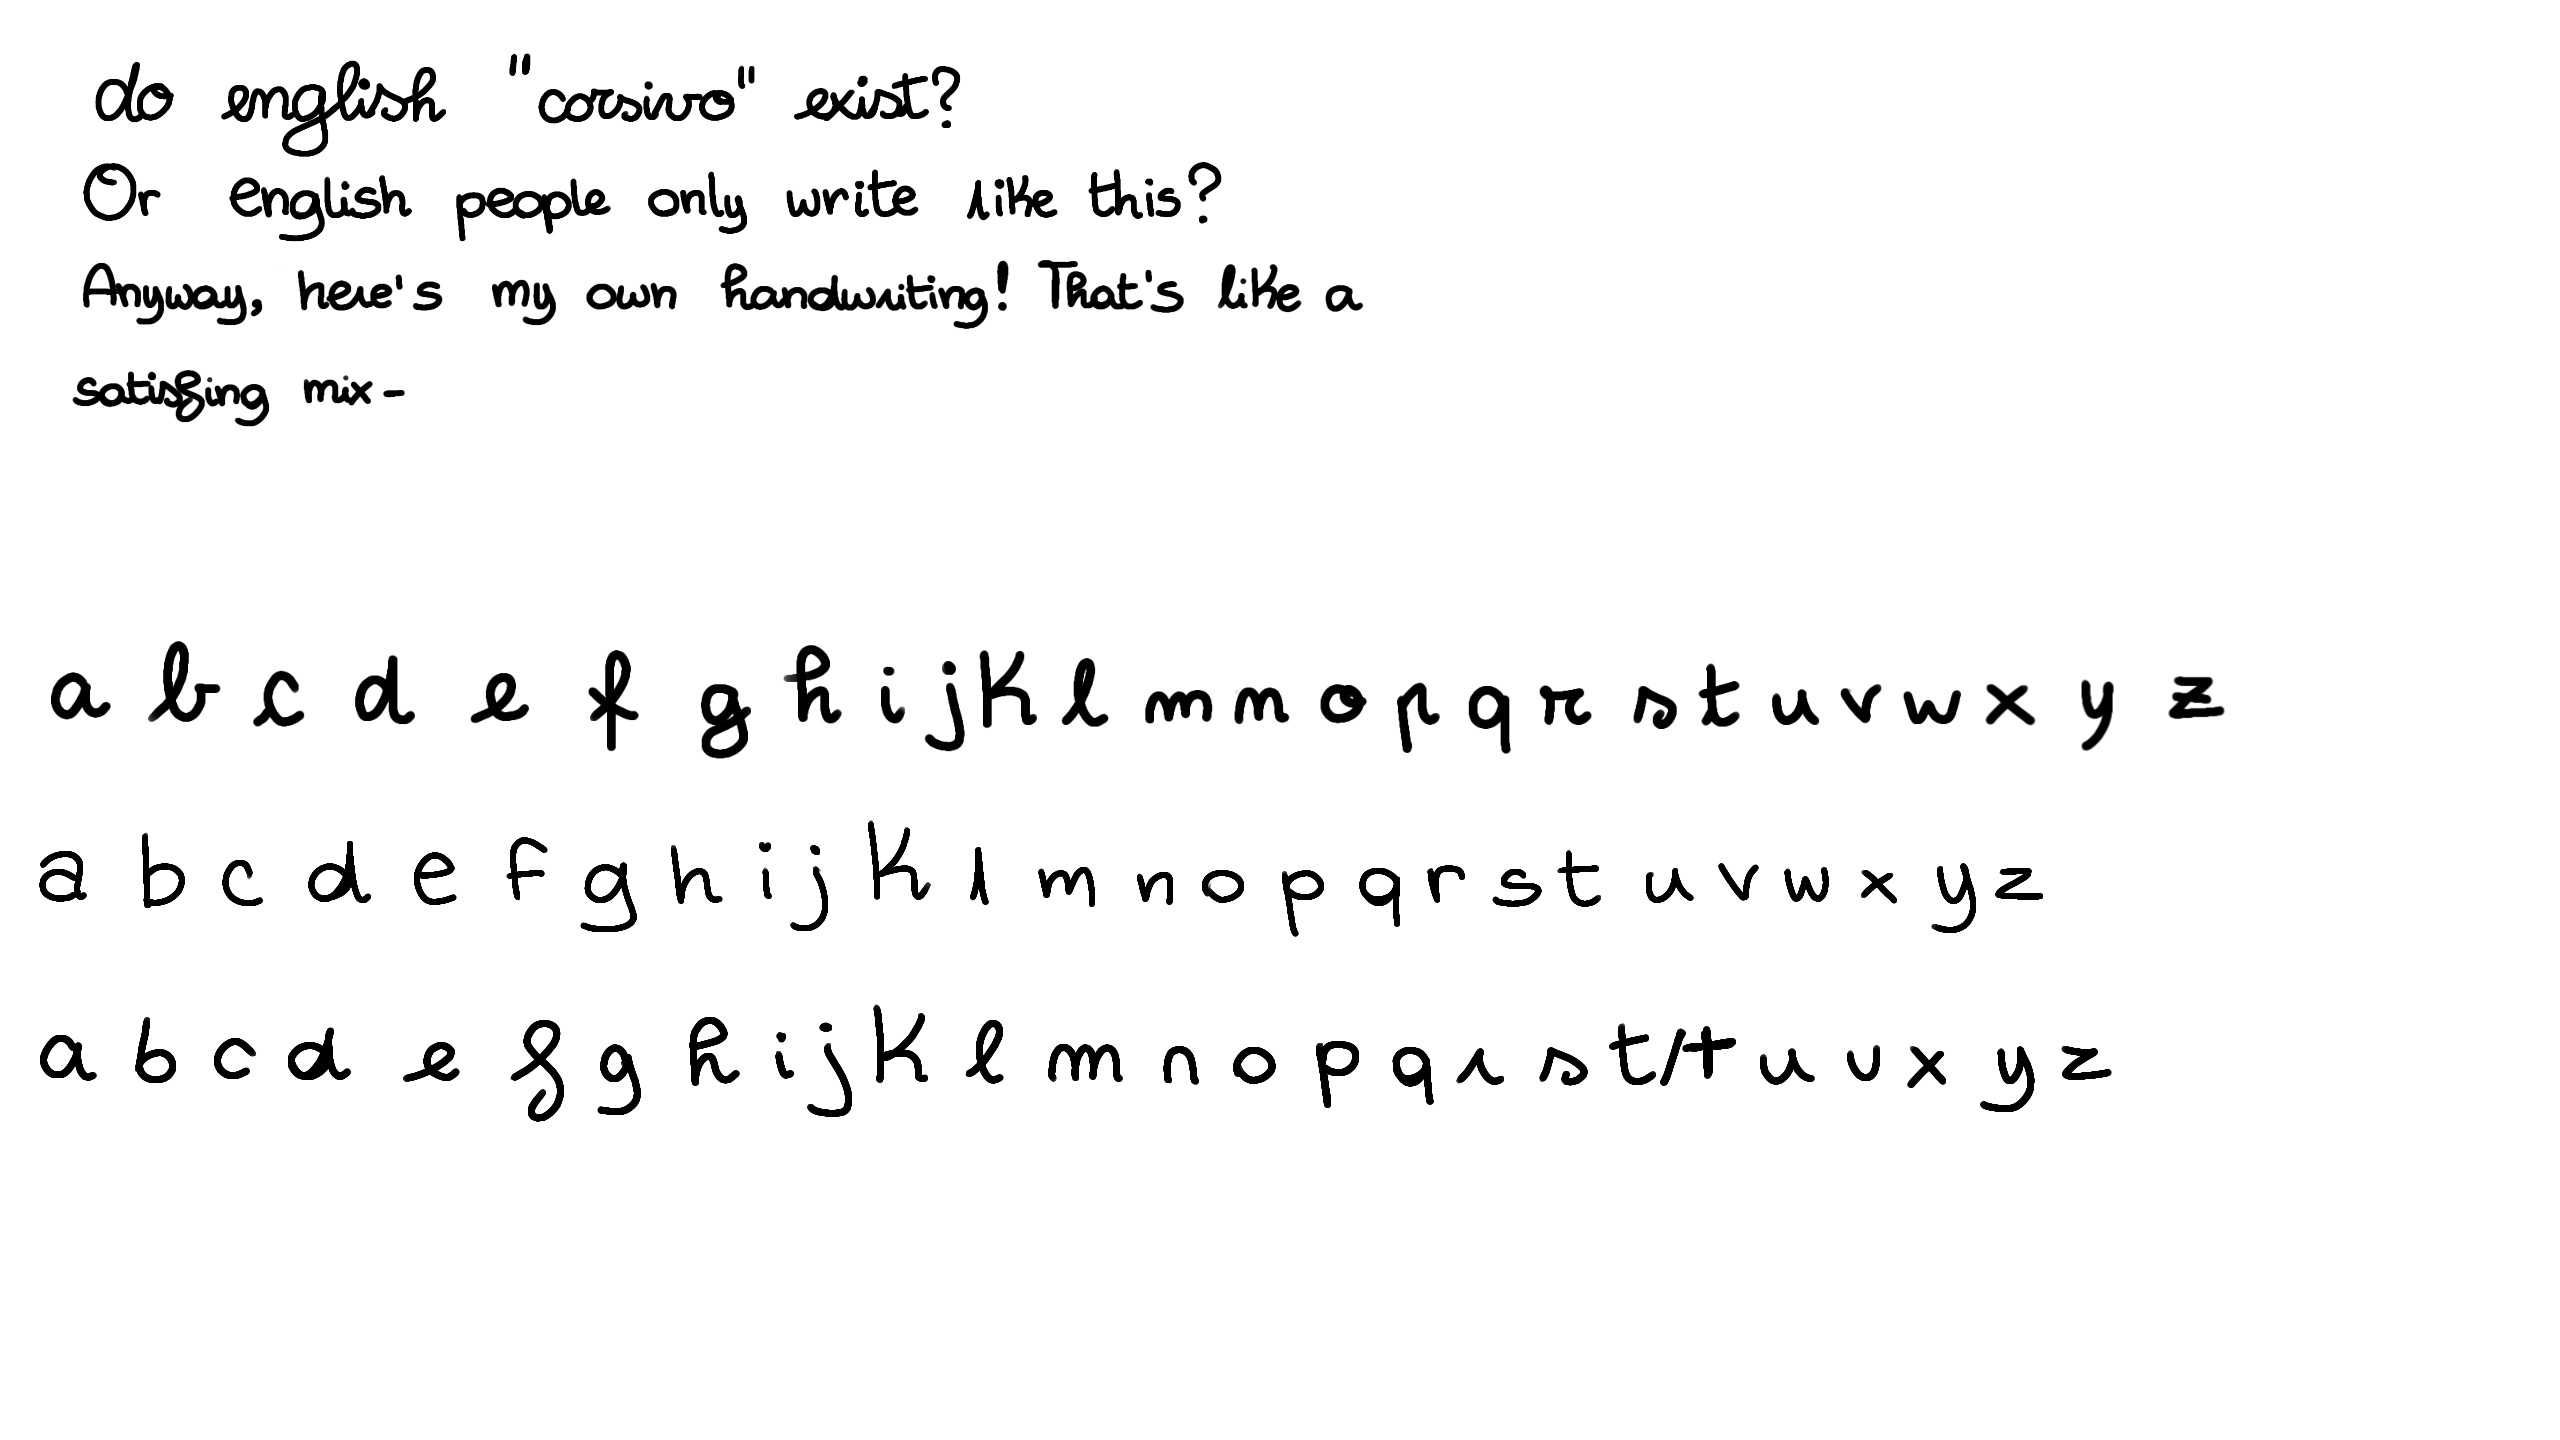 do english "corsivo" exist?
Or english people only write like this?
Anyway, here's my own handwriting! That's like a
satisfing mix-
a b c d e f g h i j k l m n o p q r s t u v w x y z
a b c d e f g h i j k l m n o p q r s t u v w x y z
a b c d e f g h i j k l m n o p q r s t/t u v x y z